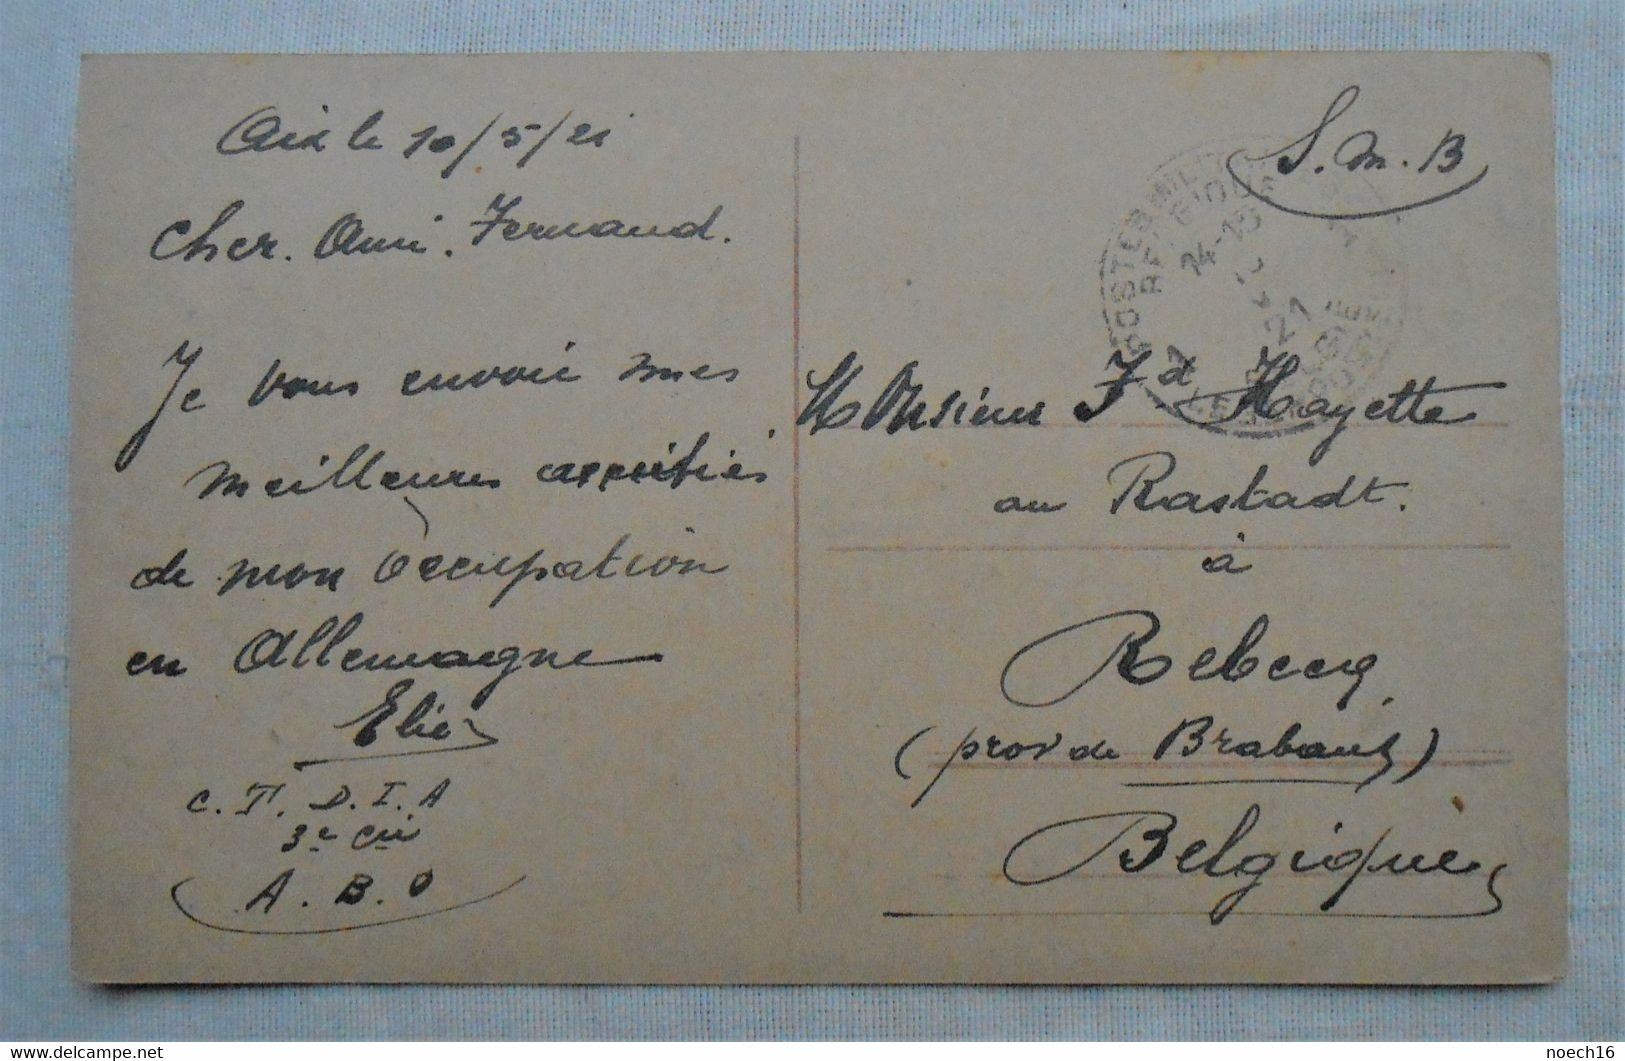 Aix le 10/5/21
Cher. Ami. Fernand.
Je vous envoie mes
meilleures amitiés
de mon occupation
en Allemagne
Elie
C. T. D. I. A
3e Cie
A. B. O
S. M. B
POSTES MIL
14-15
21
Monsieur Fd Hayette
au Rastadt.
à
Rebecq
(prov de Brabant)
Belgique
noech16